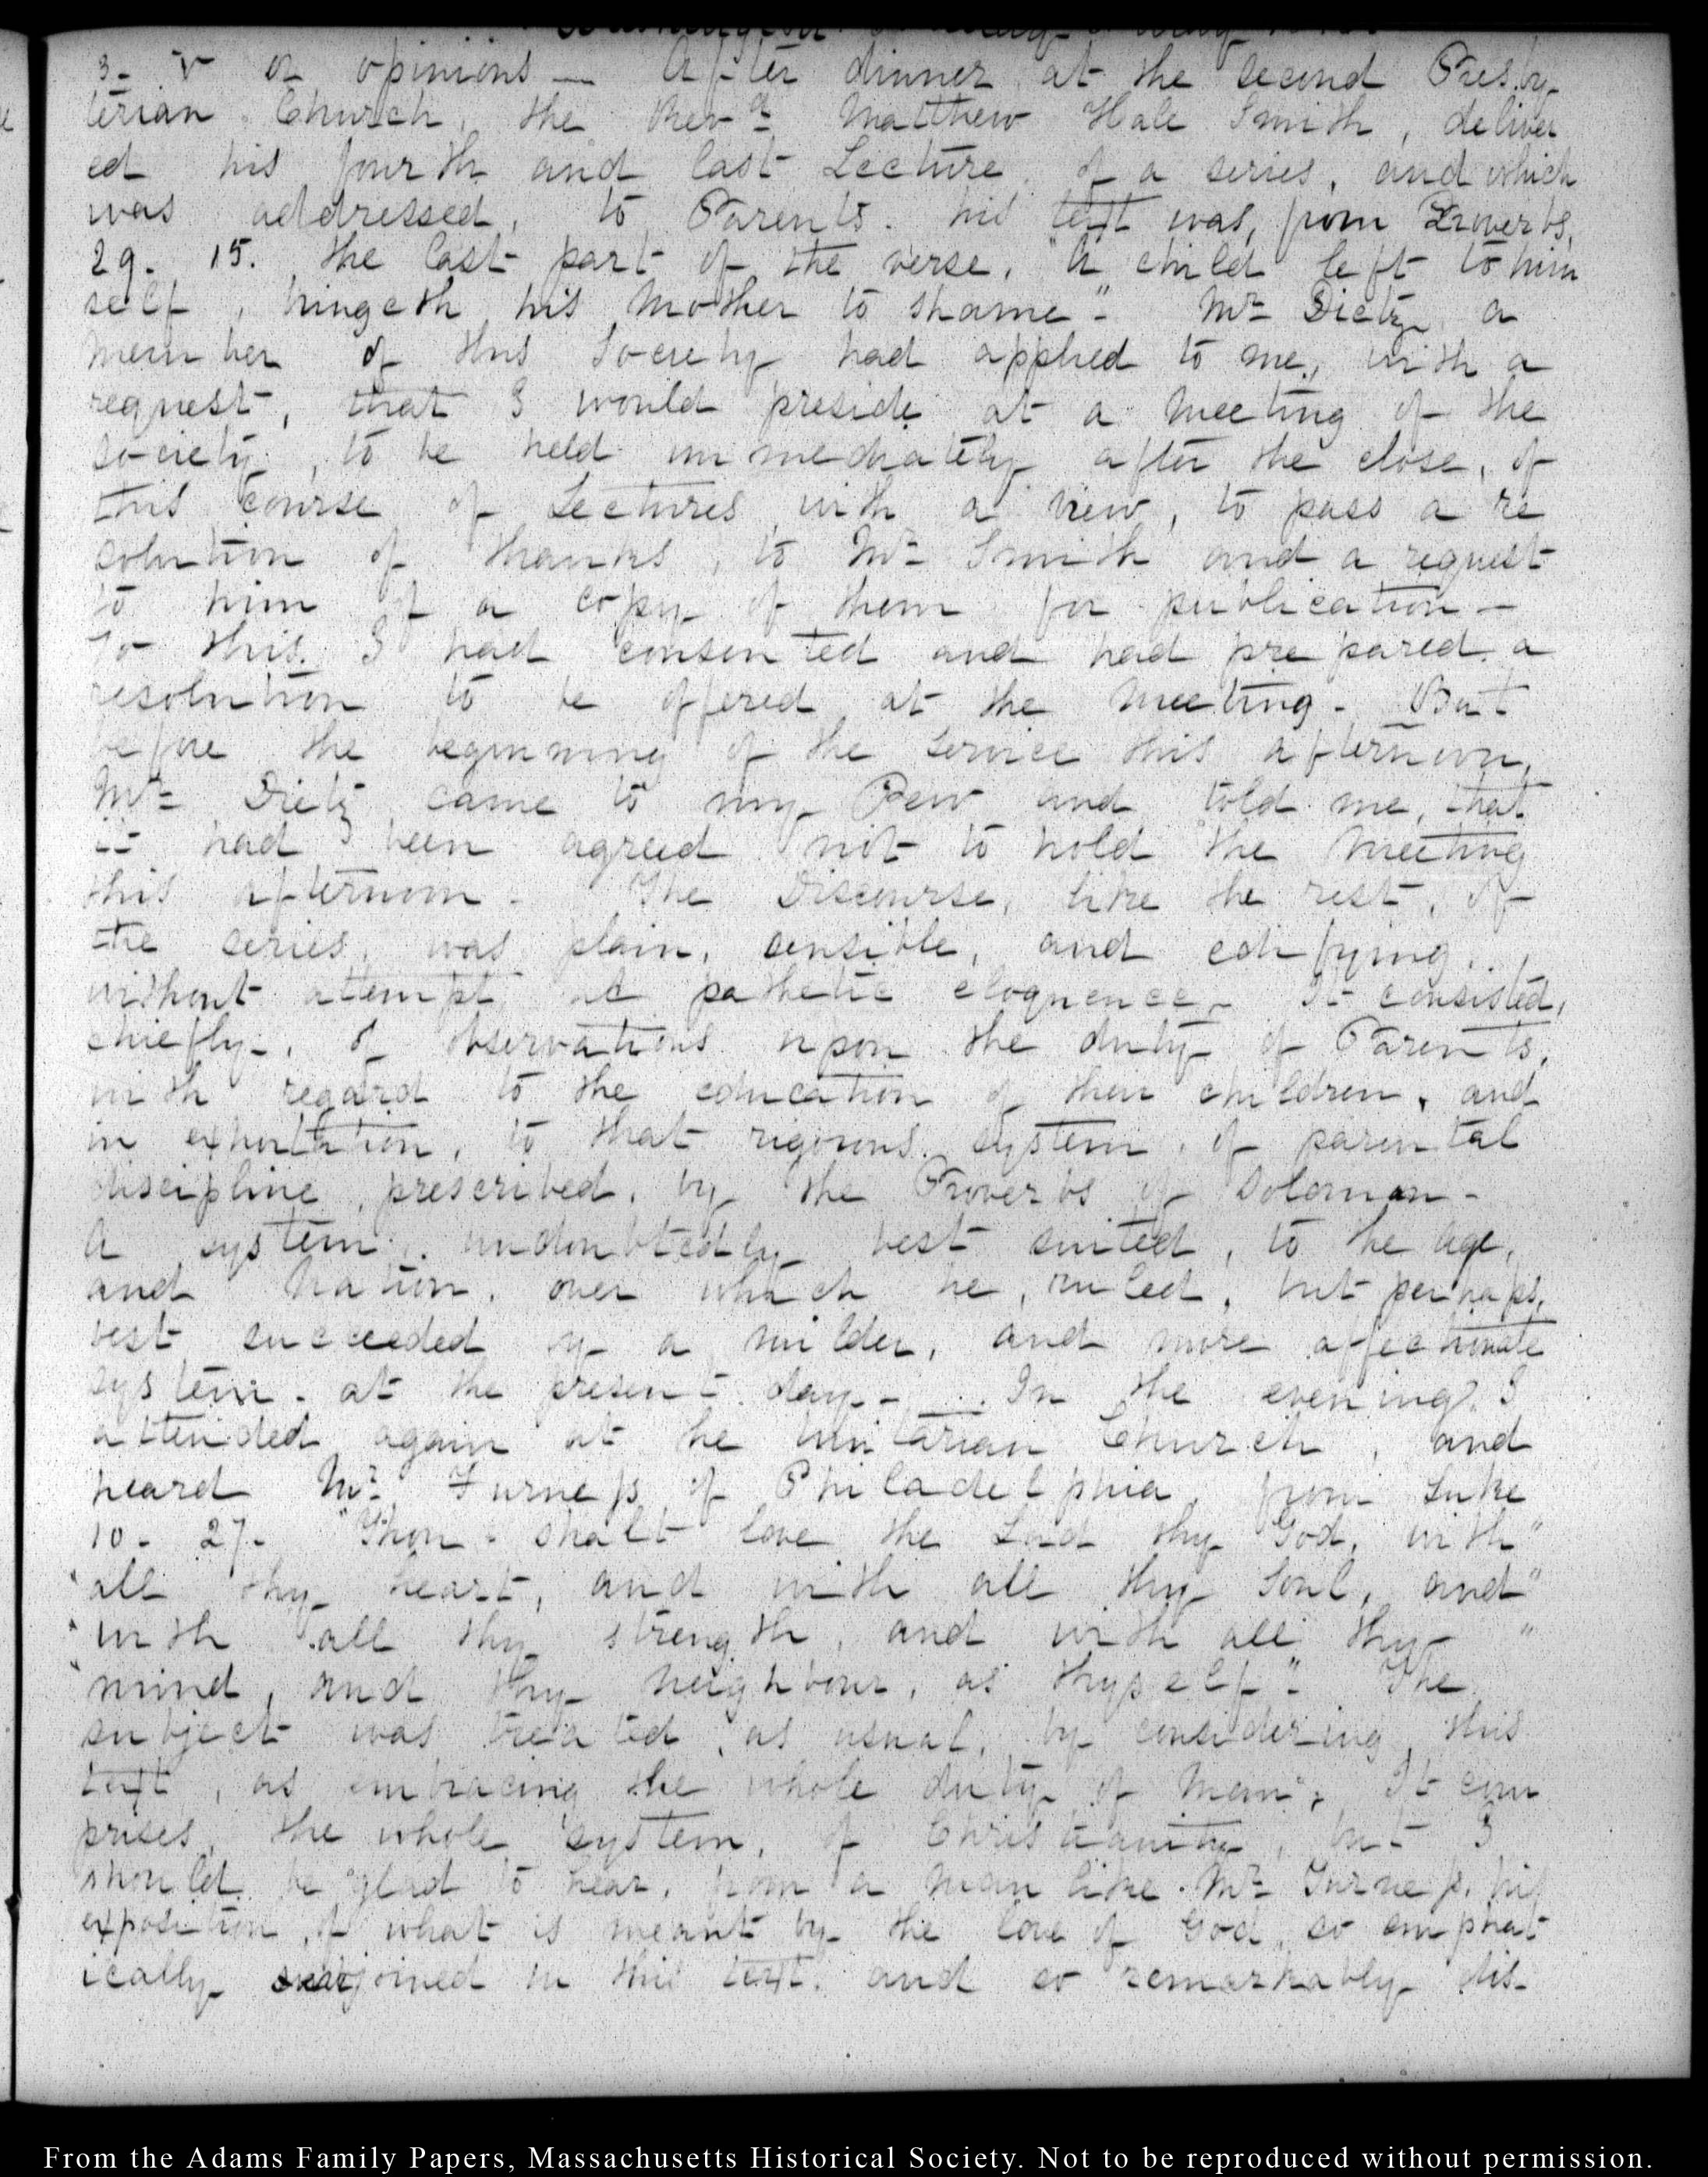 3. V or opinions — After dinner at the second Presby
terian Church, the Revd. Matthew Hale Smith, deliver
ed his fourth and last Lecture of a series, and which
was addressed, to Parents. his text was, from Proverbs,
29. 15. the last part of the verse. "A child left to him
self, bringeth his Mother to shame". Mr. Dietz a
member of this Society had applied to me, with a
request, that I would preside at a Meeting of the
society, to be held immediately after the close, of
this course of Lectures with a view, to pass a re
solution of thanks, to Mr. Smith and a request
to him of a copy of them for publication —
To this I had consented and had prepared a
resolution to be offered at the Meeting. But
before the beginning of the service this afternoon,
Mr. Dietz came to my Pew and told me, that
it had been agreed not to hold the Meeting
this afternoon. The Discourse, like the rest, of
the series, was plain, sensible, and edifying,
without attempt at pathetic eloquence. It consisted,
chiefly, of observations upon the duty of Parents,
with regard to the education of their children, and
in exhortation, to that rigorous system, of parental
discipline, prescribed, by the Proverbs of Solomon.
A system, undoubtedly best suited, to the age,
and Nation, over which he, ruled, but perhaps,
best succeeded by a milder, and more affectionate
system, at the present day. — In the evening I
attended again at the Unitarian Church, and
heard Mr. Furness of Philadelphia, from Luke
10. 27. "Thou shalt love the Lord thy God, with"
"all thy heart, and with all thy Soul, and"
"with all thy strength, and with all thy"
"mind, and thy neighbour, as thyself". The
subject was treated, as usual, by considering this
text, as embracing the whole duty of Man. It com
prises, the whole system, of Christianity, but I
should be glad to hear, from a man like Mr. Furness, his
exposition, of what is meant by the love of God, so emphat
ically enjoined in this text, and so remarkably dis-
From the Adams Family Papers, Massachusetts Historical Society. Not to be reproduced without permission.